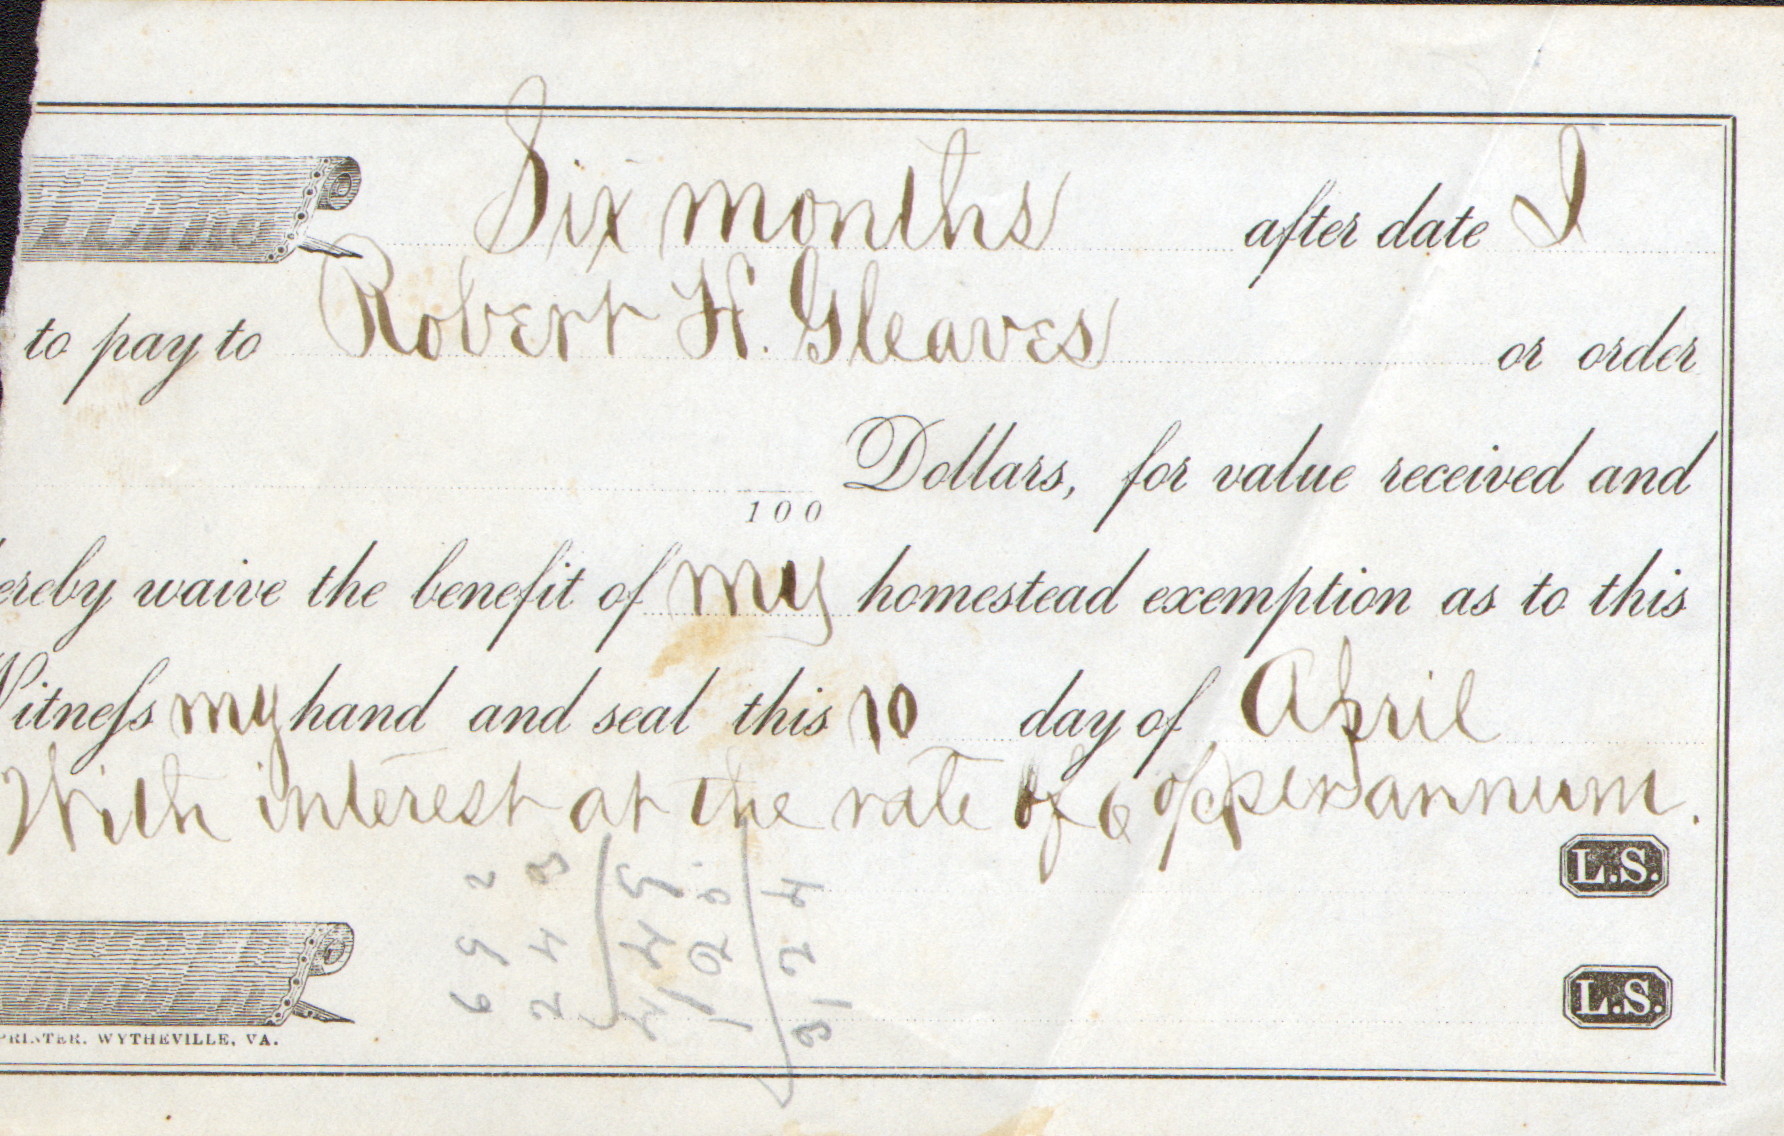 Six months after date I
to pay to Robert H. Gleaves or order
100 Dollars, for value received and
ereby waive the benefit of my homestead exemption as to this
Witness my hand and seal this 10 day of April
With interest at the rate of 6 % per annum.
L.S.
L.S.
PRINTER. WYTHEVILLE, VA.